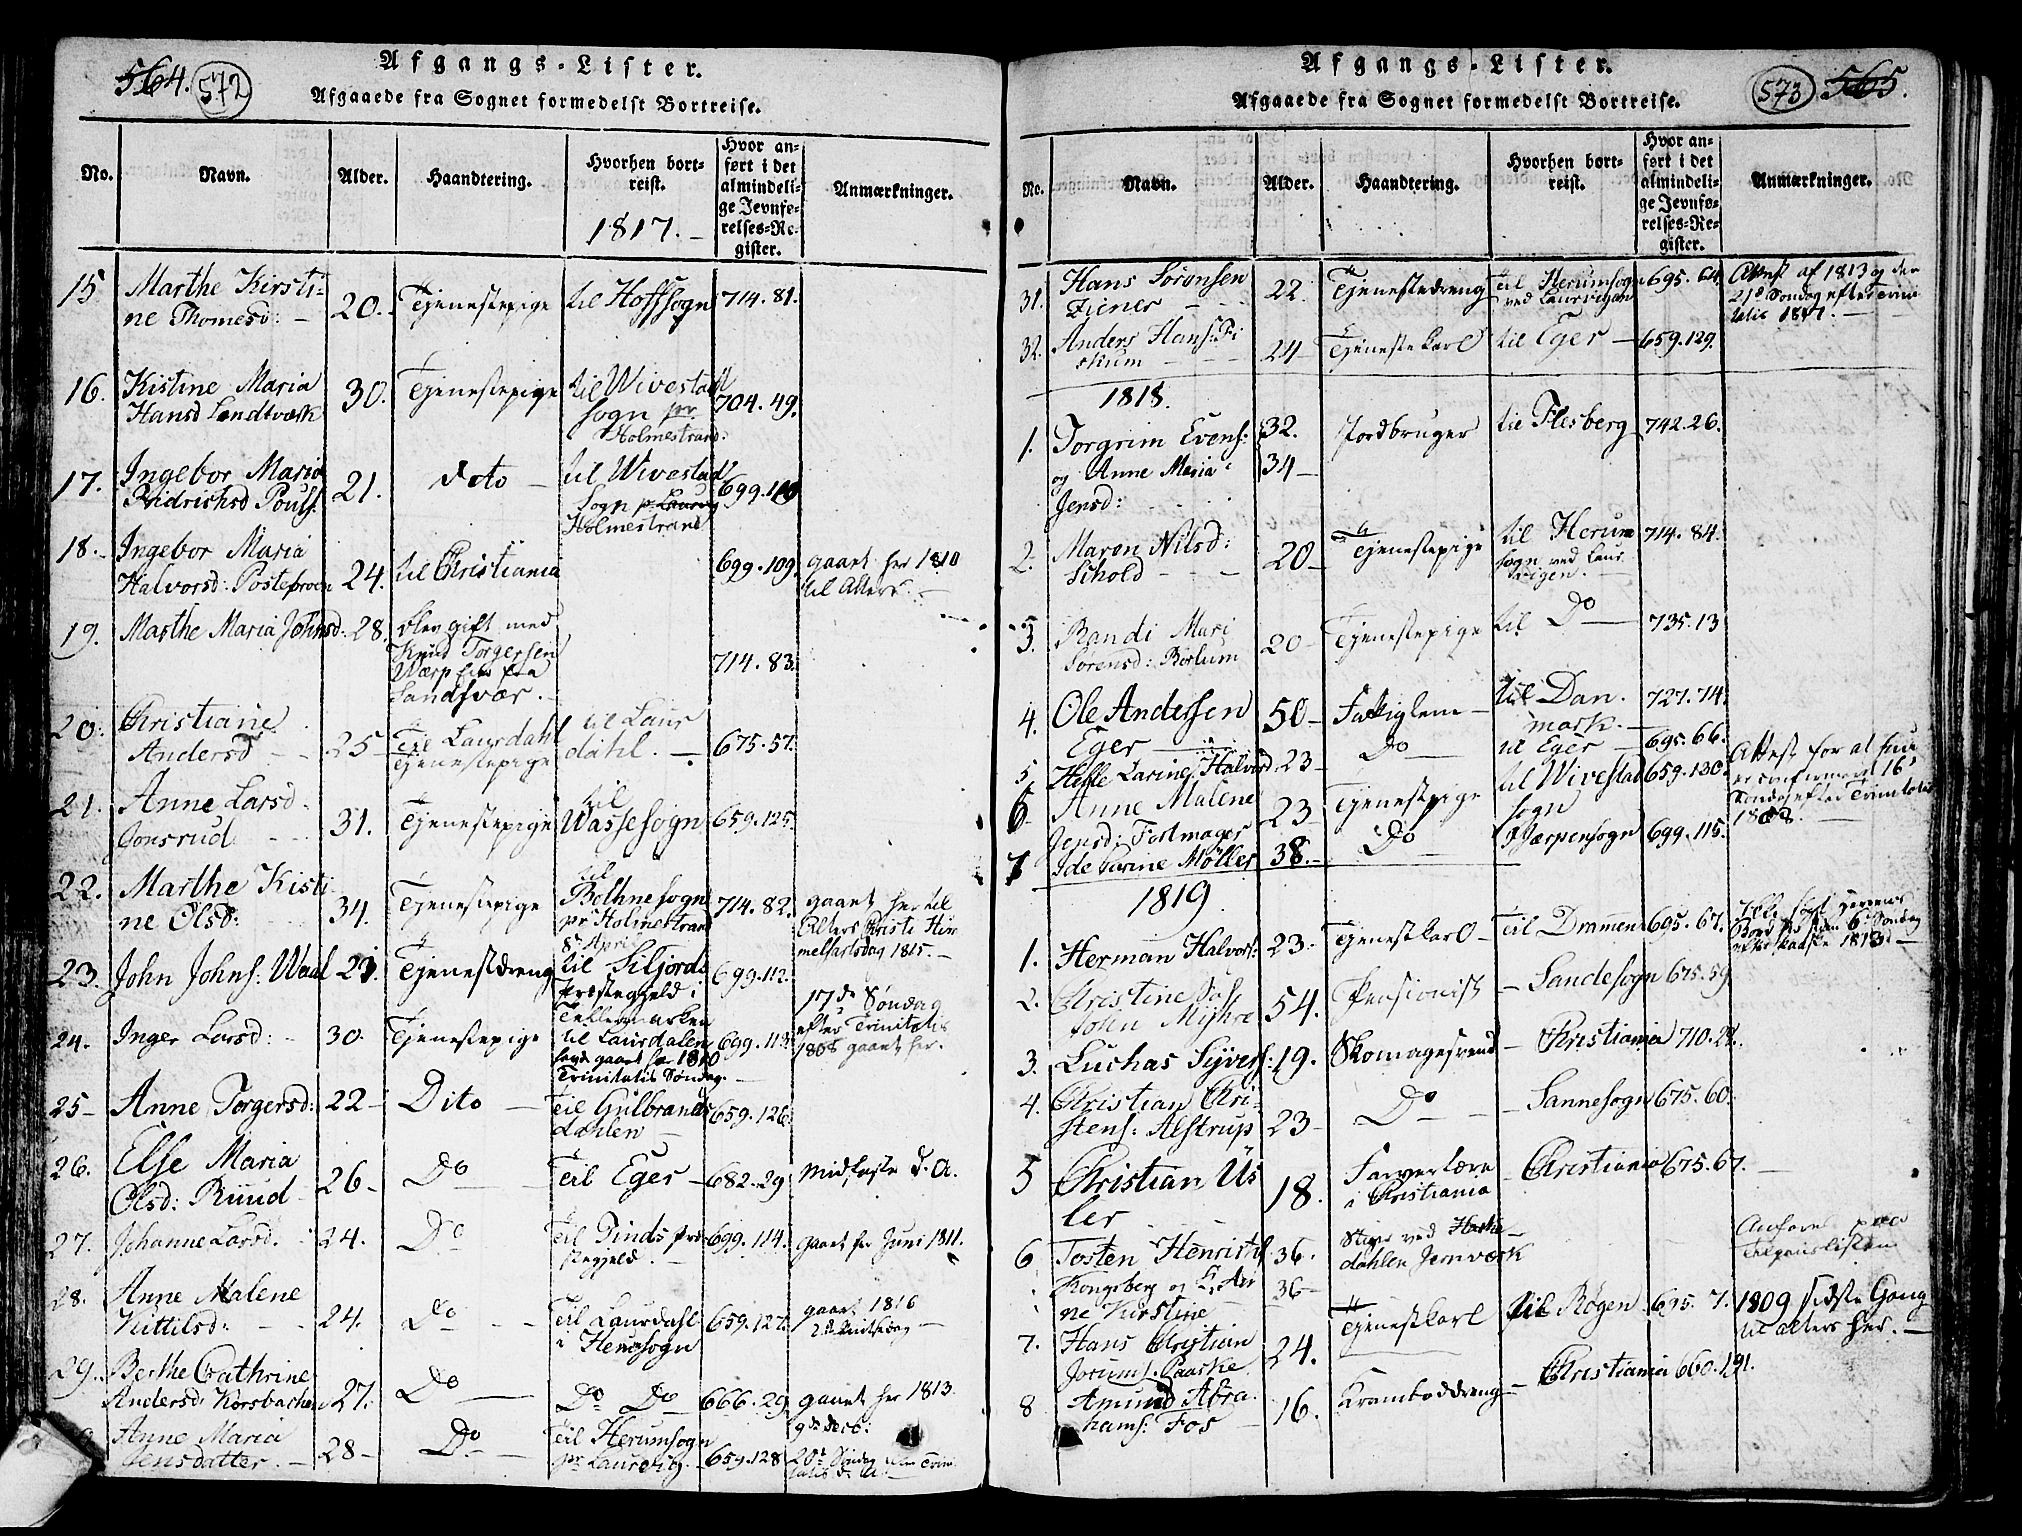 564. 572
Afgangs-Lister.
Afgaaede fra Sognet formedelst Bortreise.
No. Navn. Alder. Haandtering. Hvorhen bortreist. 1817. Hvor anført i det almindelige Jevnførelses-Register. Anmærkninger.
15 Marthe Kirsti-
ne Thomesd: 20. Tjenestepige til Hoffsogn 714. 81.
16. Kistine Maria
Hansd Landtværk 30. Tjenestepige til Wivestad
sogn pr
Holmestrand. 704. 49.
17. Ingebor Maria
Poulss: 21. Dito til Wivestad
Sogn
Holmestrand 699.
18. Ingebor Maria
Halvorsd: 24. til Christiania 699. 109. gaaet her 1810
til Alters.
19. Marthe Maria Johnsd: 28. blev gift med
Knud Torgersen
fra
Sandsvær. 714. 83.
20. Christiane
Andersd 25 Til Laurdahl
Tjenestepige til Laur
dahl. 675. 57.
21. Anne Larsd
Jonsrud 31. Tjenestepige til
Wassesogn 659. 125.
22. Marthe Kisti
ne Olsd: 34. Tjenestepige til
Bothnesogn
pr Holmestrand 714. 82. gaaet her til
Alters Christi Him
melfartsdag 1815.
23. John Johns: Waal 23. Tjenestdreng 8de April
til Siljords
Præstegjeld i
Tellemarken 699. 112. 17de Søndag
efter Trinitatis
1808 gaaet her.
24. Inger Larsd: 30. Tjenestepige til Laurdalen
gaaet 1810
Trinitatis Søndag. 699. 113.
25 Anne Torgersd: 22 Dito Til Gulbrands
dahlen 659. 126.
26. Else Maria
Olsd: Ruud 26 Do Til Eger 682. 29 Midfaste d. A.
27. Johanne Larsd. 24. Do Til Tinds præ
stegjeld. 699. 114. gaaet her Juni 1811.
28. Anne Malene
Kittilsd: 24. Do Til Laurdahl
i 659. 127. gaaet 1816
29. Berthe Cathrine
Andersd Korsbachen 27. Do Do Do 666. 29 gaaet her 1813.
9de Decb:
Anne Maria
Jensdatter. 28 Do Til Herumsogn
pr Laurvig. 659. 128 20de Søndag

573 565.
Afgangs-Lister.
Afgaaede fra Sognet formedelst Bortreise.
No. Navn. Alder. Haandtering. Hvorhen bortreist. Hvor anført i det almindelige Jevnførelses-Register. Anmærkninger.
31. Hans Sørensen
Ziener 22. Tjenestedreng Til Herumsogn
ved Laurvigen 695. 64. Attest af 1813 og den
21de Søndag efter Trini
tatis 1817.
32. Anders Hans: Fi
skum 24 Tjenestekarl til Eger 659. 129.
1818.
1. Torgrim Evens:
og Anne Maria
Jensd: 32.
34 Jordbruger til Flesberg 742. 26.
2. Maren Nilsd:
Schold 20 Tjenestepige til Herum
sogn ved Laur
vigen. 714. 84.
3. Randi Mari
Sørensd: 20 Tjenestepige til Do 735. 13
4. Ole Andersen
Eger 50 Fattiglem til Dan
mark. 727. 74.
5. Helle Karine Halvorsd 23 Do til Eger 695. 66.
6 Anne Malene
Jensd: 23 Tjenestepige til Wivestad
sogn 659. 130. Attest for at
er confirmeret 16de
Søndag efter Trinitatis
1808.
7 Ide Karine Møller 38. Do Jarpensogn 699. 115.
1819
1. Herman Halvors: 23 Tjenestkarl Til Drammen 695. 67.
efter Paaske 1813.
2. Christine
John Myhre 54. Pensionist Sandesogn 675. 59.
3. Luchas Syvers: 19. Skomagersvend Christiania 710. 22.
4. Christian Chri-
stens: Alstrup 23 Do Sannesogn 675. 60.
5 Christian Us
ler 18. Farverlære
i Christiania Christiania 675. 67.
6 Tosten Henrichs:
Kongsberg og
ne Kirstine 36.
36 ved
dahlen Jernværk Anført paa
Tilgangslisten
7. Hans Christian
Paaske 24. Tjenestkarl til Røgen 695. 7. 1809 sidste Gang
til alters her.
8 Amund Abra
hams: Fos 16. Kramboddreng Christiania 660. 191.